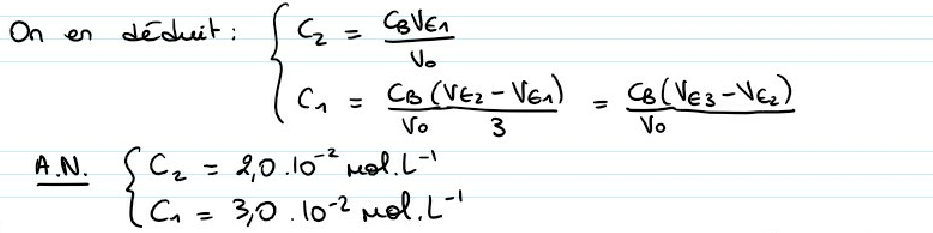 On en déduit : { C₂ = C_B V_E1 / V₀
C₁ = C_B (V_E2 - V_E1) / V₀ 3 = C_B (V_E3 - V_E2) / V₀
A.N. { C₂ = 2,0.10⁻² mol.L⁻¹
C₁ = 3,0.10⁻² mol.L⁻¹